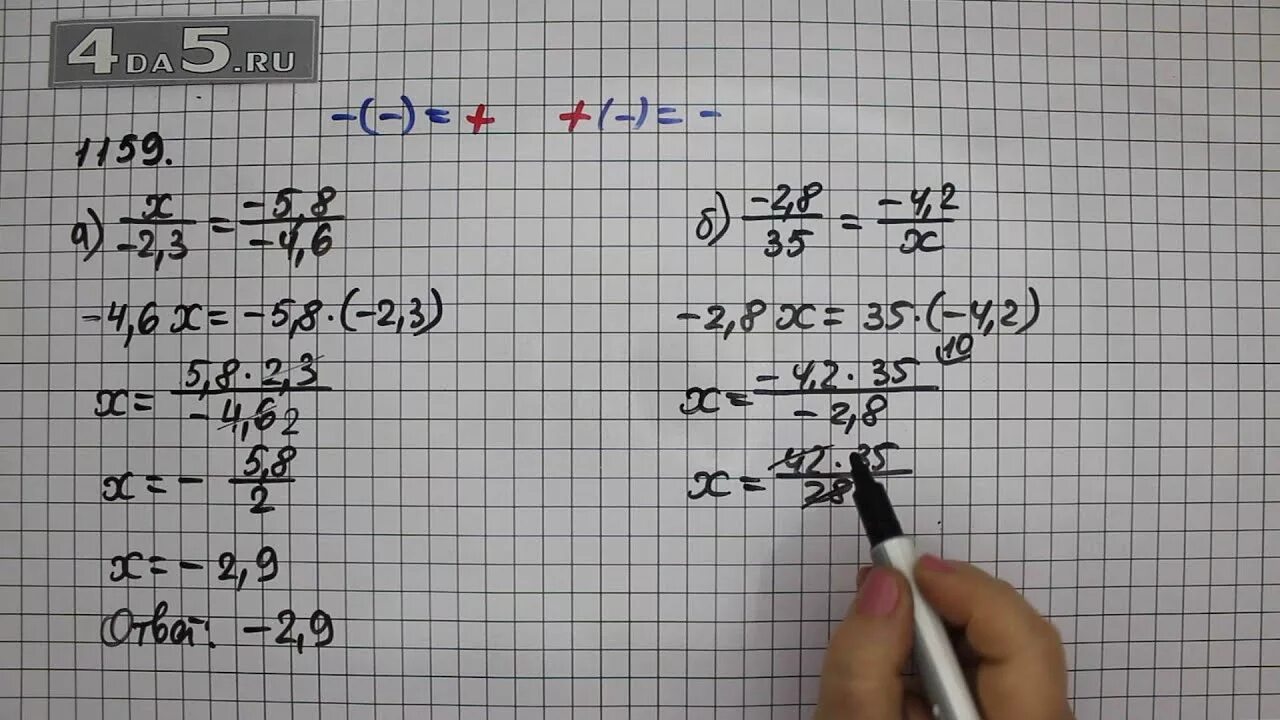 4DA5.RU
-(-) = + +(-) = -
1159.
а) x/-2,3 = -5,8/-4,6
-4,6 x = -5,8·(-2,3)
x = 5,8·2,3/-4,6 2
x = - 5,8/2
x = - 2,9
Ответ: -2,9
б) -2,8/35 = -4,2/x
-2,8 x = 35·(-4,2)
x = -4,2·35/-2,8 10
x = 42·35/28